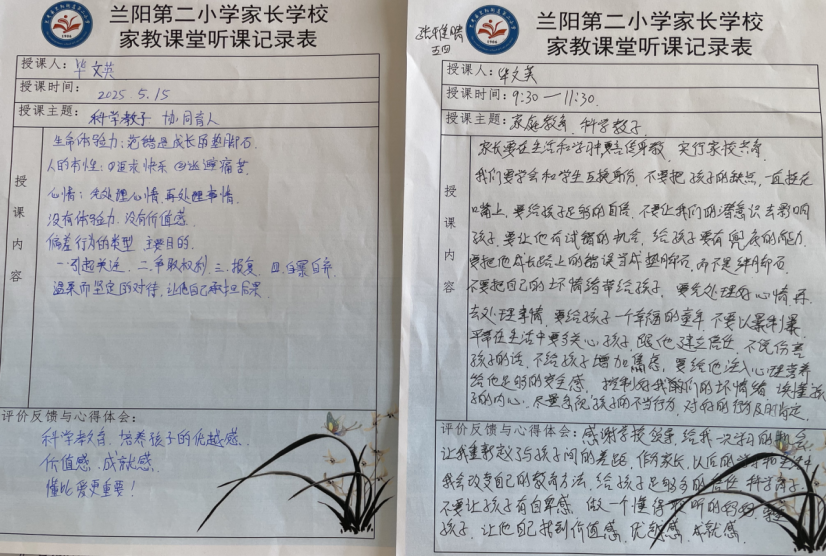 兰阳第二小学家长学校
家教课堂听课记录表
授课人：毕文英
授课时间：2025.5.15
授课主题：科学教子 协同育人
授课内容
生命体验力：犯错是成长的垫脚石
人的本性：①追求快乐 ②逃避痛苦
心情：先处理心情，再处理事情.
没有体验力，没有价值感.
偏差行为的类型 主要目的.
一.引起关注，二.争取权利，三.报复，四.自暴自弃.
温柔而坚定的对待，让他自己承担后果.
评价反馈与心得体会：
科学教育，培养孩子的优越感.
价值感，成就感.
懂比爱更重要！
兰阳第二小学家长学校
家教课堂听课记录表
五四
授课人：毕文英
授课时间：9:30—11:30.
授课主题：家庭教育，科学教子
授课内容
家长要在生活和学习中要言传身教，实行家校共育
我们要学会和学生互换身份，不要把孩子的缺点，一直挂在
嘴上，要给孩子足够的自信，不要让我们的潜意识去影响
孩子，要让他有试错的机会，给孩子要有兜底的能力
要把他成长路上的错误当成垫脚石，而不是绊脚石
不要把自己的坏情绪带给孩子，要先处理好心情，再
去处理事情，要给孩子一个幸福的童年，不要以暴制暴
平常在生活中要多关心孩子，跟他建立信任，不说伤害
孩子的话，不给孩子增加焦虑，要给他注入心理营养
给他足够的安全感，控制好我们的坏情绪，读懂孩
子的内心，尽量忽视孩子的不当行为，对好的行为及时肯定
评价反馈与心得体会：感谢学校领导，给我一次学习的机会
让我重新定义与孩子间的差距，作为家长，以后的
我会改变自己的教育方法，给孩子足够多的信任，科学育子
不要让孩子有自卑感，做一个懂得聆听的妈妈，
孩子，让他自己找到价值感，优越感，成就感